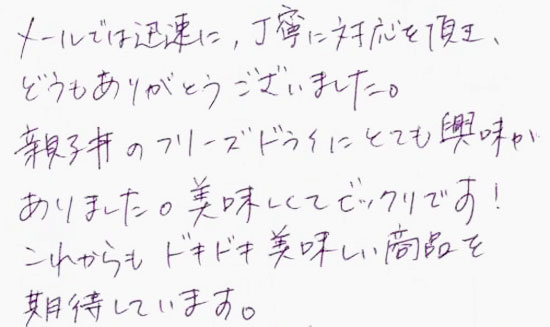 メールでは迅速に,丁寧に対応を頂き、
どうもありがとうございました。
親子丼のフリーズドライにとても興味が
ありました。美味しくてビックリです!
これからもドキドキ美味しい商品を
期待しています。